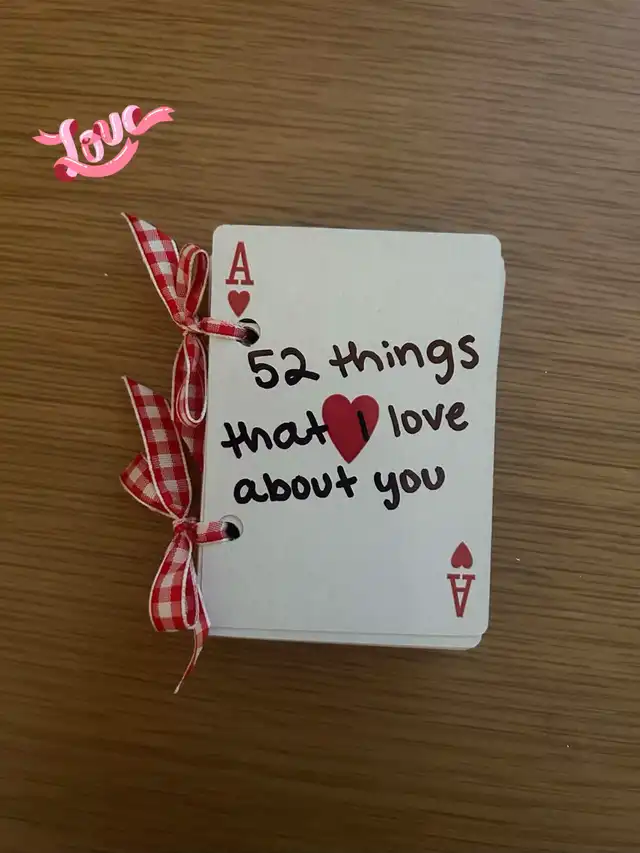 Love
A
52 things
that I love
about you
A